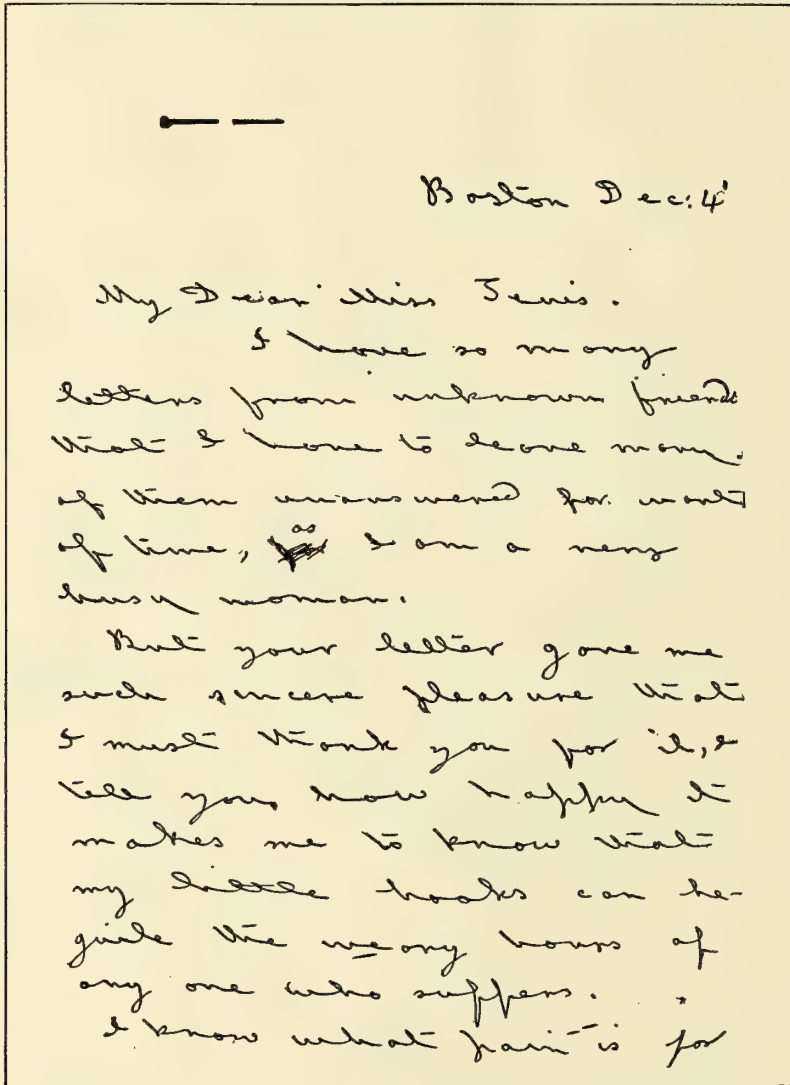 Boston Dec: 4
My Dear Miss
I have so many
letters from unknown friends
that I have to leave many
of them unanswered for want
of time, as I am a very
busy woman.
But your letter gave me
such sincere pleasure that
I must thank you for it, &
tell you how happy it
makes me to know that
my little books can be-
guile the weary hours of
any one who suffers.
I know what pain is for